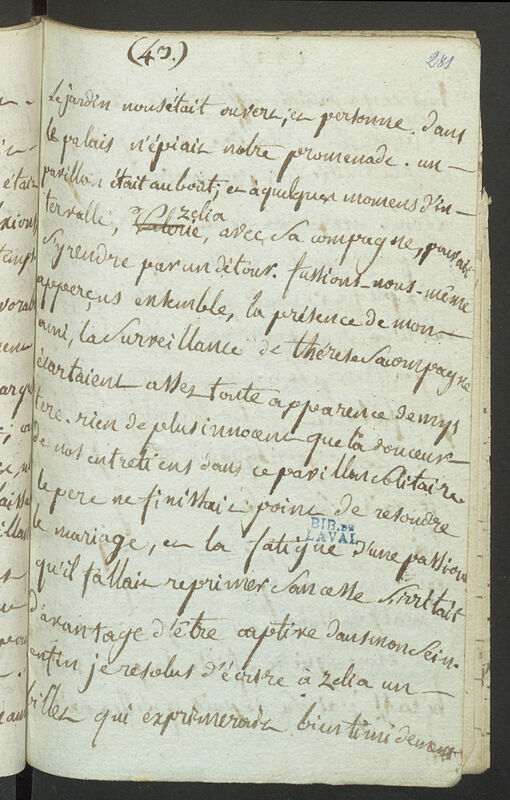 (43.)
281
Le jardin nous était ouvert, et personne dans
le palais n'épiait notre promenade. un
pavillon était au bout; et a quelques momens d'in-
zelia
tervalle, Valerie, avec Sa compagne, pouvait
S'y rendre par un détour. fussions-nous-même
apperçus ensemble, la présence de mon
ami, la Surveillance de thérèse Sa compagne
écartaient assez toute apparence de mys
tere. rien de plus innocent que la douceur
de nos entretiens dans ce pavillon Solitaire.
le pere ne finissait point de resoudre
le mariage, et la fatigue d'une passion
qu'il fallait reprimer Sans cesse S'irritait
d'avantage d'être captive dans mon Sein.
enfin je resolus d'écrire a zelia un
billet qui exprimerait bien timidement
BIB. DE
LAVAL